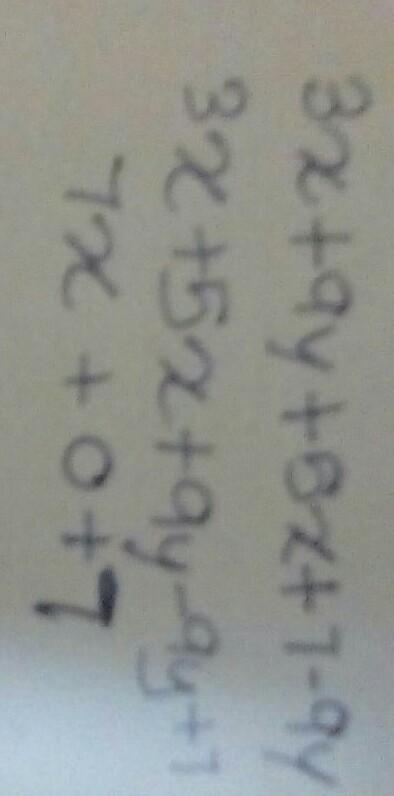 3x+9y+5x+7-9y
3x+5x+9y-9y+7
7x+0+7